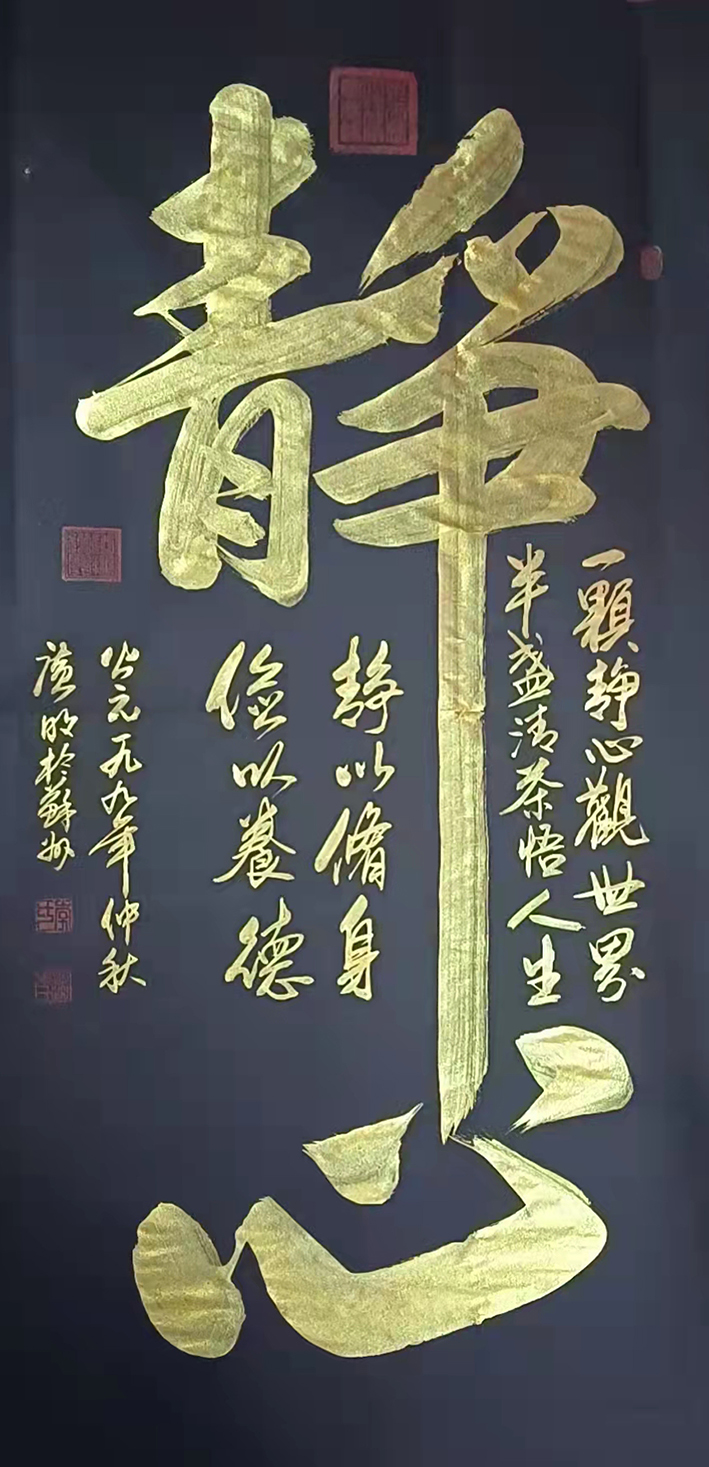 靜心
一顆靜心觀世界
半盞清茶悟人生
静以脩身
儉以養德
公元一九九年仲秋
於蘇州